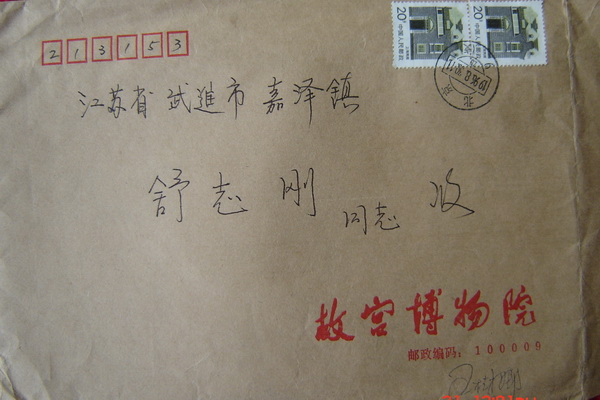 213153
20 中国人民邮政
20 中国人民邮政
北京
江苏省武進市嘉泽镇
舒志刚 同志 收
故宫博物院
邮政编码：100009